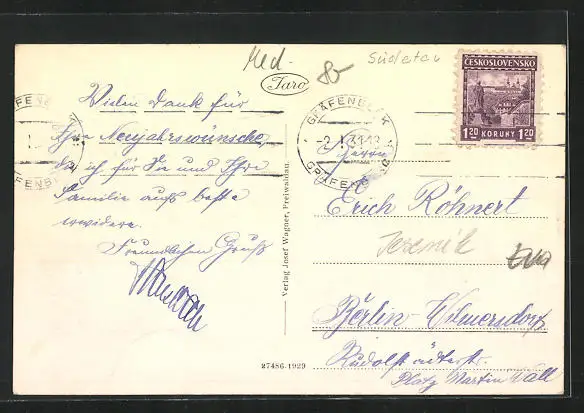 Med.
80
Sudeten
Faro
ČESKOSLOVENSKO
1.20 KORUNY 1.20
GRÄFENBERK
-2.I.31-13
GRÄFENB
ÄFENB
Vielen Dank für
Ihre Neujahrswünsche,
die ich für Sie und Ihre
Familie aufs beste
erwidere.
Freundlichen Gruß
Verlag Josef Wagner, Freiwaldau.
27486-1929
Herrn
Erich Röhnert
Jeseník
Berlin-Wilmersdorf
Rudolstädterstr.
Platz Martin Wall